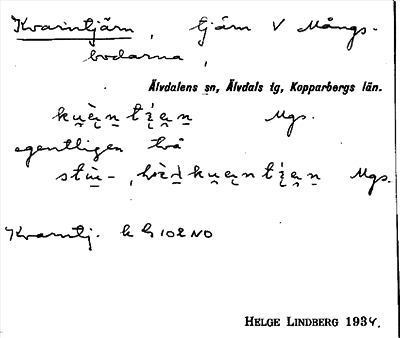 Kvarntjärn, tjärn V Mångs-
bodarna,
Älvdalens sn, Älvdals tg, Kopparbergs län.
Mgs.
egentligen två
Mgs.
Kvarntj. k h 102 NO
HELGE LINDBERG 1934.